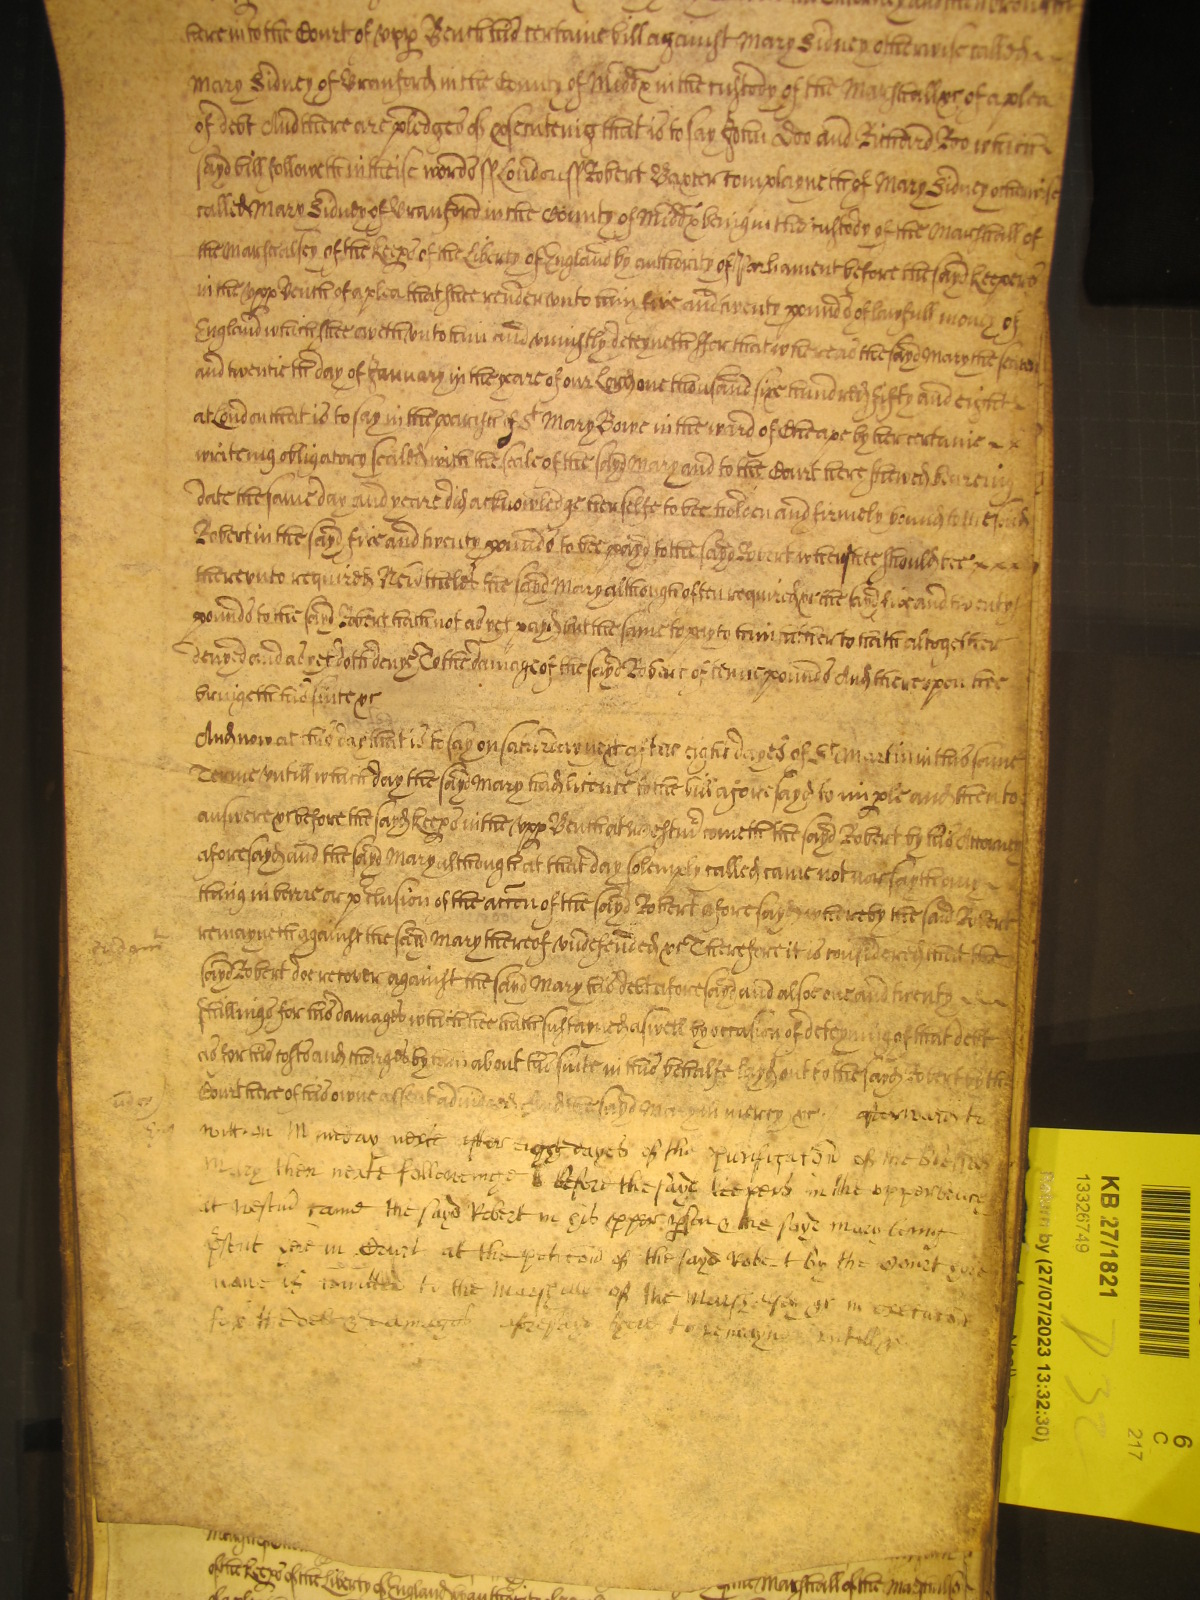 here into the Court of upp Bench his certaine bill against Mary Sidney otherwise called
Mary Sidney of Branford in the County of Middx in the custody of the Marshall &c of a plea
of debt And there are pledges of prosecuteing that is to say John Doo and Richard Roo which
sayd bill followeth in theise words ss London ss Robert Baxter complayneth of Mary Sidney otherwise
called Mary Sidney of Branford in the County of Middx being in the custody of the Marshall of
the Marshalsey of the Keeps of the Liberty of England by authority of Parliament before the sayd Keepers
in the upp Bench of a plea that shee render unto him five and twenty pounds of lawfull money of
England which shee oweth unto him and uniustly deteyneth ffor that whereas the sayd Mary the seaven
and twentieth day of January in the yeare of our Lord one thousand six hundred fifty and eight
at London that is to say in the parish of St Mary Bowe in the ward of Cheape by her certaine
writeing obligatory sealed with the seale of the sayd Mary and to the Court here shewed beareing
date the same day and yeare did acknowledge her selfe to bee holden and firmely bound to the sayd
Robert in the sayd five and twenty pounds to bee payd to the sayd Robert when shee should bee
thereunto required Neverthelesse the sayd Mary although often required &c the sayd five and twenty
pounds to the sayd Robert hath not as yet payd but the same to pay to him hitherto hath altogether
denyed and as yet doth deny To the damage of the sayd Robert of tenne pounds And thereupon hee
bringeth his suite &c
And now at this day that is to say on saturday next after eight dayes of St Martin in this same
Terme untill which day the sayd Mary had licence to the bill aforesayd to imple and then to
answere &c before the sayd Keeps in the upp Bench at Westm cometh the sayd Robert by his Attorney
aforesayd and the sayd Mary although at that day solemply called came not nor sayth any
thing in barre or pclusion of the accon of the sayd Robert aforesayd whereby the said Robert
remayneth against the said Mary thereof undefended &c Therefore it is considered that the
sayd Robert doe recover against the sayd Mary his debt aforesayd and alsoe one and twenty
shillings for his damages which hee hath sustayned aswell by occasion of deteyning of that debt
as for his costs and charges by him about his suite in this behalfe layd out to the sayd Robert by the
Court here of his owne assent adiudged And the sayd Mary in mercy &c afterwards to
witt on Munday next after eight dayes of the purificacon of the blessed
Mary then nexte followeinge before the sayd keepers in the upper bench
at Westm came the sayd Robert in his pper pson & the sayd mary
psent here in Court at the peticon of the sayd Robert by the Court here
is comitted to the Marshall of the Marshalsey &c in execucon
for the debt & damages aforesaid here to remayne untill &c
of the Keeps of the Liberty of England by authority
Marshall of the Marshalsey
KB 27/1821
13326749
(27/07/2023 13:32:30)
6
C
217